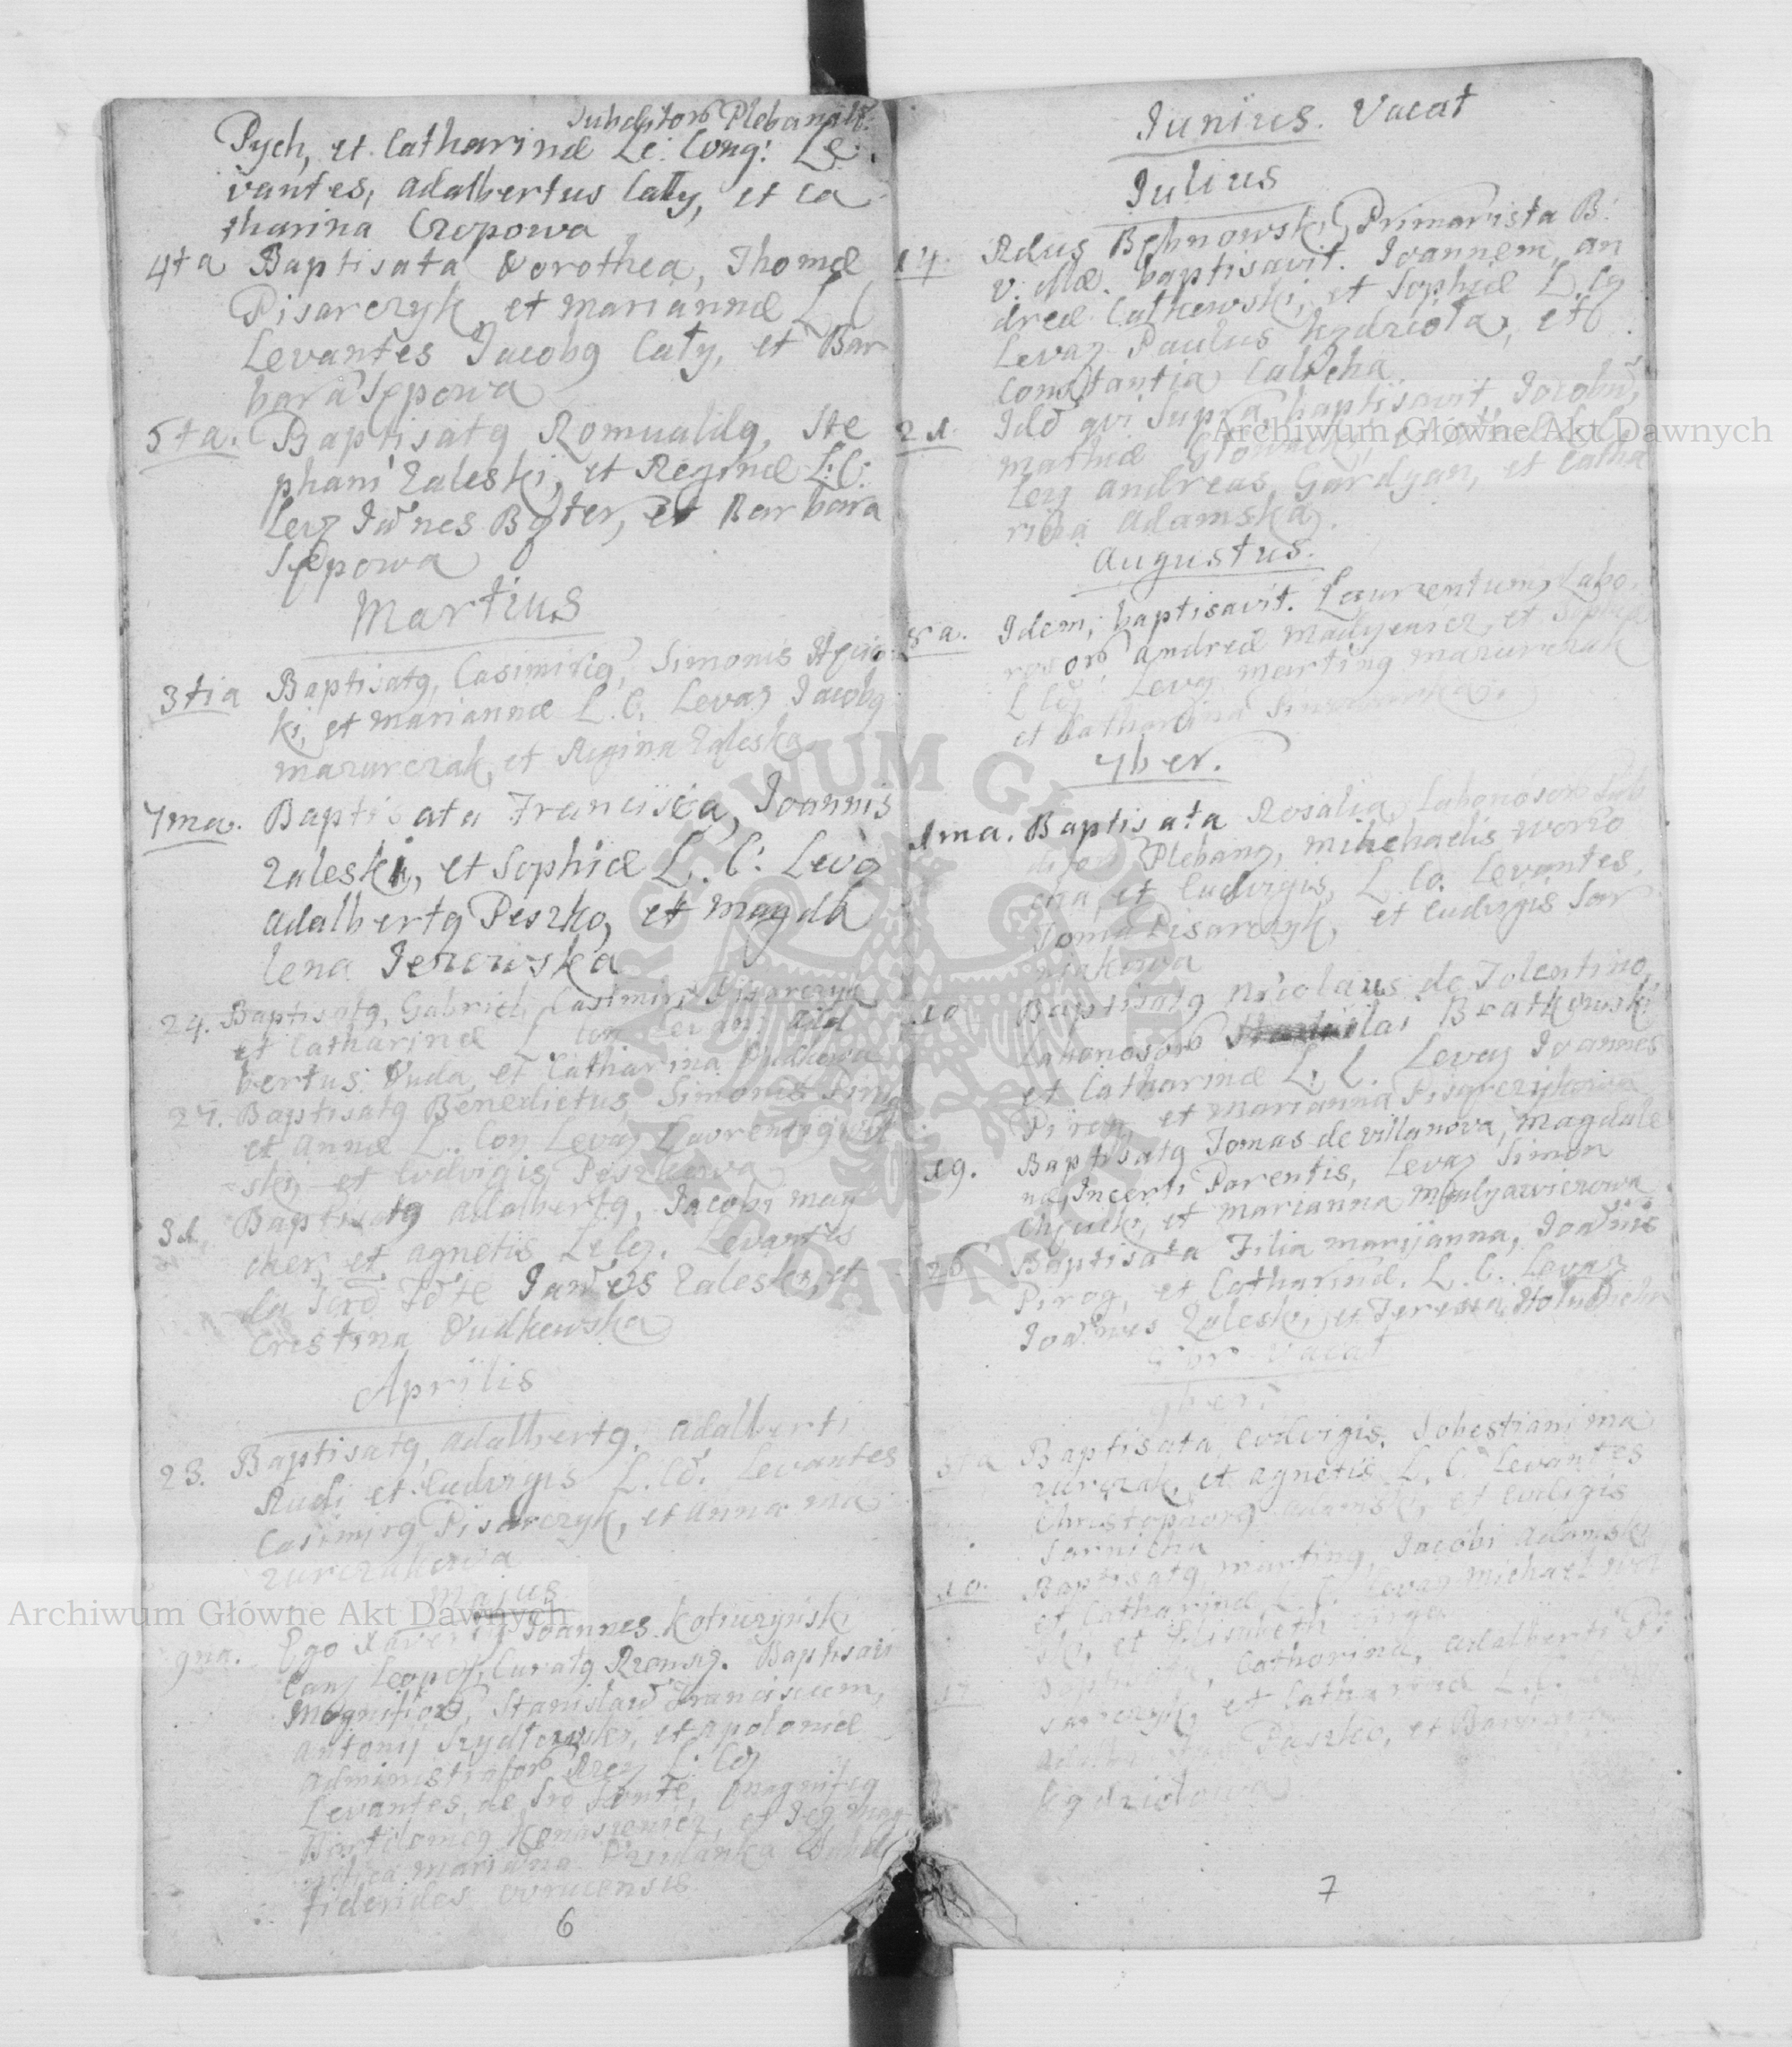 Subditorū Plebanaliū
Pych, et Catharinæ Le: Cong: Le
vantes, Adalbertus Cały, et Ca
tharina Czopowa
4ta Baptisata Dorothea, Thomæ
Pisarczyk et Mariannæ L C
Levantes Jacobq Cały, et Bar
bara Sępowa
5ta. Baptisatq Romualdq, Ste
phani Zaleski, et Reginæ L: C:
Levz Joānes Bqter, et Barbara
Sępowa
Martius
3tia Baptisatq, Casimirq, Simonis
ki, et Mariannæ L. C. Levaz Jacobq
Mazurczak, et Regina Zaleska
7ma. Baptisata Francisca, Joannis
Zaleski, et Sophiæ L. C: Levz
Adalbertq Peszko, et Magda
lena Jezewska
24. Baptisatq, Gabriel, Casimiri Pisarczyk
et Catharinæ L Con Levan: Adal
bertus Duda, et Catharina Dudkowa
27. Baptisatq Benedictus Simonis
et Annæ L. Con Levaz Laurentiq
ski, et Ludvigis Peszkowa
31. Baptisatq Adalbertq, Jacobi May
cher, et Agnetis Le Cq. Levantes
de Scro Fōte Joān̄es Zaleski, et
Crestina Dudkowska
Aprilis
23. Baptisatq, Adalbertq, Adalberti
Rudi et Ludvigis L. Co. Levantes
Casimirq Pisarczyk, et Anna Ma
zurczakowa
Majus
9na. Ego Xaveriq Joannes Kotiuzyński
Canz Leopol. Curatq Baptisavi
Magnificorū, Stanislaū Franciscum,
Antonij Szydłowski, et Apoloniæ
Administratorū L: Cq
Levantes, de Sro Fonte, Magnificq
Bartlomeq et
Marianna
ovrucensis
6
Junius. Vacat
Julius
14. Rdus Bqhnowski, Primarista B:
V: Mæ. baptisavit. Joannem, An
dreæ Calkowski, et Sophiæ L. Cq
Levaz Paulus Kqdziola, et
Constantia Calicha
21. Idē qvi Supra, baptisavit, Jacobū,
Mathiæ
Levz Andreas Gardyan, et Catha
rina Adamska.
Augustus.
8a. Idem, baptisavit. Laurentium, Labo
rosorū Andreæ Madyewicz, et Sophiæ
L Cō, Levz Martinq Mazurczak
et Catharina
7ber.
1ma. Baptisata Rosalia, Laborosorū Sub
ditorū Plebanq, Mihchaelis Woro
cha, et Ludvigis, L. Co. Levantes,
Toma Pisarczyk, et Ludvigis Sar
nickowa
10 Baptisatq Nicolaus de Tolentino,
Laborosorū Bratkowski
et Catharinæ L. C. Levaz Joannes
Pirog, et Marianna Pisarczykowa
19. Baptisatq Tomas de Villanova, Magdale
næ, Incerti Parentis, Levaz Simon
et Marianna Madyawiczowa
26 Baptisata Filia Marijanna, Joānis
Pirog, et Catharinæ. L. C. Levaz
Joānnes Zaleski, et Teressa
8br Vacat
9ber.
5ta Baptisata Ludvigis, Sobestiani Ma
zurczak, et Agnetis L. C. Levantes
Christophorq Adamski, et Ludvigis
Sarnicha
10. Baptisatq, Martinq, Jacobi Adamski
et Catharinæ L. C. Levaz Michael
ski, et Elisabeth
17 Baptisata, Catharina, Adalberti Pi
sarczyk, et Catharinæ L. C.
Paszko, et Barbara
Kqdziolowa
7
Archiwum Główne Akt Dawnych
Archiwum Główne Akt Dawnych
ARCHIWUM GŁÓWNE AKT DAWNYCH